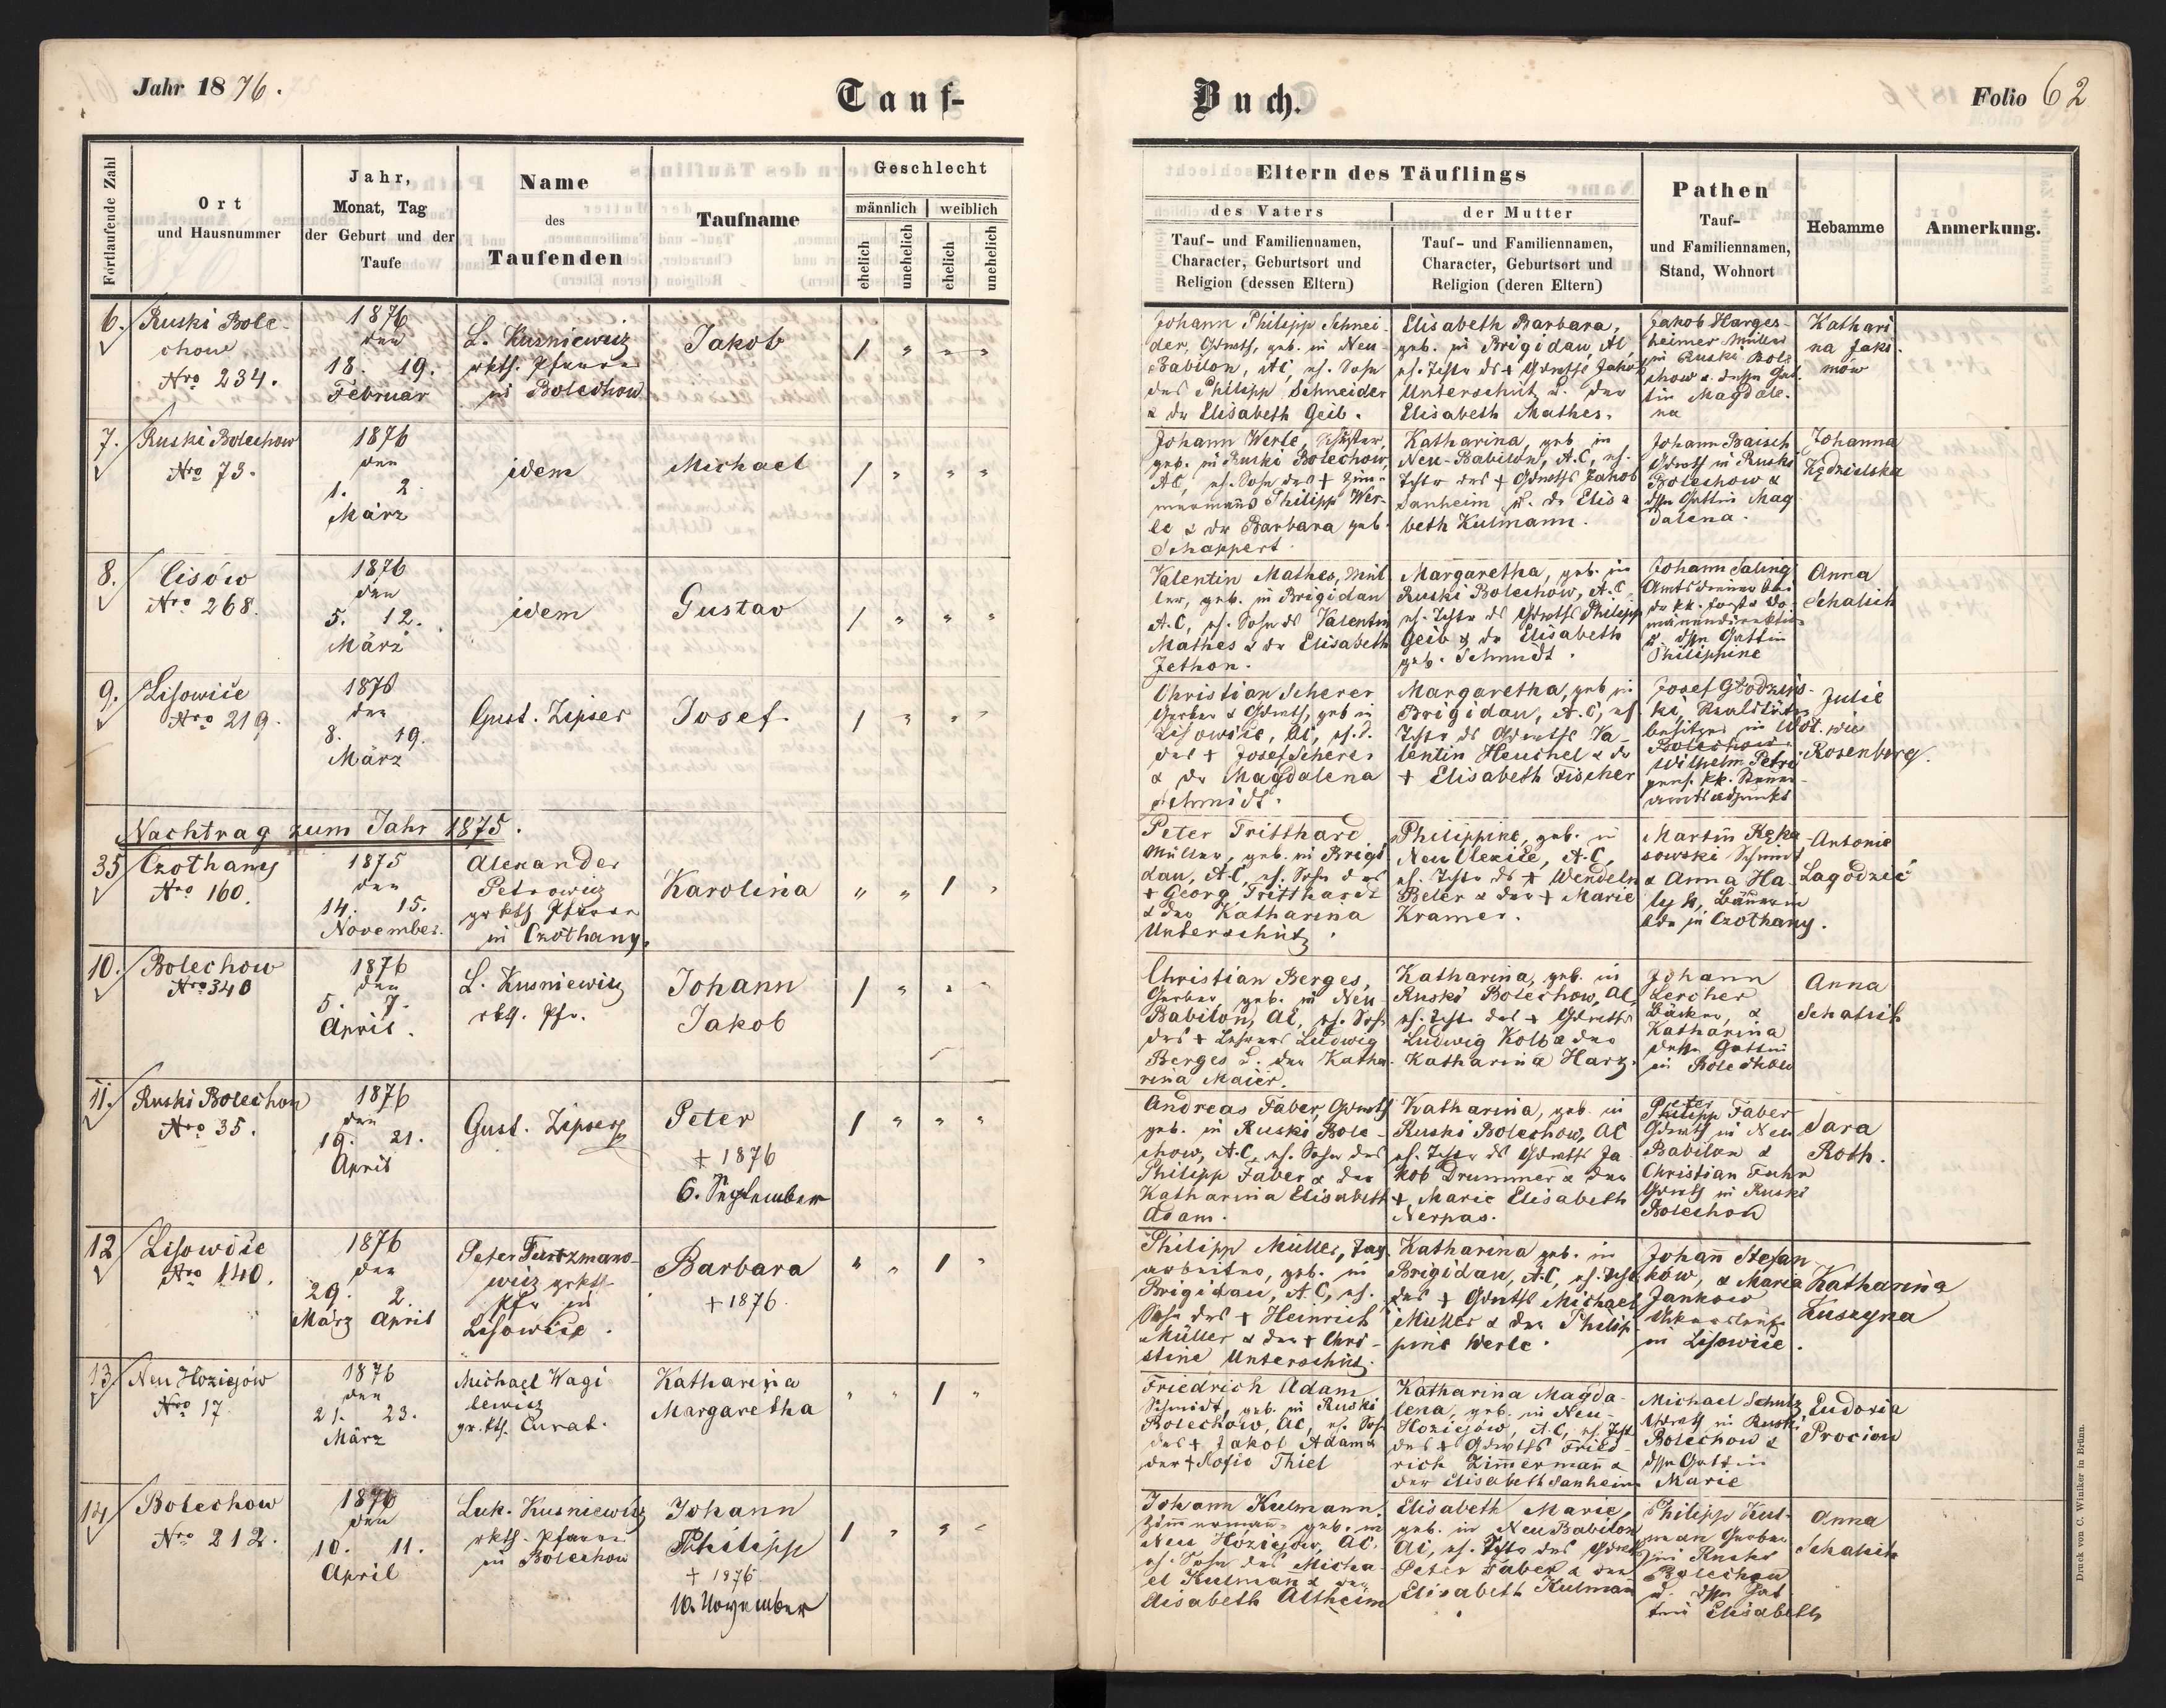 Jahr 1876.
Tauf-
Buch.
Folio 62
Fortlaufende Zahl
Ort
und Hausnummer
Jahr,
Monat, Tag
der Geburt und der
Taufe
Name
des
Taufenden
Taufname
Geschlecht
männlich
weiblich
ehelich
unehelich
ehelich
unehelich
Eltern des Täuflings
des Vaters
der Mutter
Tauf- und Familiennamen,
Character, Geburtsort und
Religion (dessen Eltern)
Tauf- und Familiennamen,
Character, Geburtsort und
Religion (deren Eltern)
Pathen
Tauf-
und Familiennamen,
Stand, Wohnort
Hebamme
Anmerkung.
6.
Ruski Bole-
chow
Nro 234.
1876
den
18. 19.
Februar
L. Kusniewicz
rkth. Pfarrer
in Bolechow
Jakob
1 " " "
Johann Philipp Schnei-
der, Grundw., geb. in Neu
Babilon, AC, eh. Sohn
des Philipp Schneider
& der Elisabeth Geib.
Elisabeth Barbara,
geb. in Brigidau, AC,
Unterschütz u. der
Elisabeth Mathes.
Jakob Harges-
heimer Müller
in Ruski Bole
chow u. dessen Gat
tin Magdale-
na
Kathari
na Jaki
mow
7.
Ruski Bolechow
Nro 73.
1876
den
1. 2.
März
idem
Michael
1 " " "
Johann Werle,
geb. in Ruski Bolechow,
AC, eh. Sohn des + Zim-
mermanns Philipp Wer-
le & der Barbara geb.
Schappert.
Katharina, geb. in
Neu-Babilon, A.C, eh.
Tochter des + Jakob
Sanheim u. der Elisa
beth Kulmann.
Johann Baisch
in Ruski
Bolechow &
dssn Gattin Mag
dalena.
Johanna
Kędzielska
8.
Cisów
Nro 268.
1876
den
5. 12.
März
idem
Gustav
1 " " "
Valentin Mathes, Mül
ler, geb. in Brigidau
A.C, eh. Sohn des Valentin
Mathes & der Elisabeth
Jethon.
Margaretha, geb. in
Ruski Bolechow, A.C,
Philipp
Geib & der Elisabeth
geb. Schmidt.
Johann Saling
Amtsdiener bei
u. dssn Gattin
Philippine
Anna
Schalich
9.
Lisowice
Nro 219.
1876
den
8. 19.
März
Gust. Zipser
Josef
1 " " "
Christian Scherer
Gerber & Grundw., geb in
Lisowice, AC, eh. S.
des + Josef Scherer
& der Magdalena
Schmidt.
Margaretha, geb in
Brigidau, A.C, eh.
Va-
lentin Heuchel & der
+ Elisabeth Fischer
Josef Głodzins-
ki, Realitäten
besitzer in
Bolechow
Wilhelm Petri
pens. kk. Steuer-
amtsadjunkt
Julie
Rosenberg.
Nachtrag zum Jahr 1875.
35
Czołhany
Nro 160.
1875
den
14. 15.
November.
Alexander
Petrowicz
grkth Pfarrer
in Czołhany.
Karolina
" " 1 "
Peter Tritthard
Müller, geb. in Brigi
dau, A.C, eh. Sohn des
+ Georg Tritthardt
& der Katharina
Unterschütz.
Philippine, geb. in
Neu Olexice, A.C,
eh. Tochter des + Wendeln
Beler & der + Marie
Kramer.
Martin Rępa
sowski Schmied
& Anna Ha-
Bäuerin
in Czołhany.
Antonie
Łagodzić
10.
Bolechow
Nro 340
1876
den
5. 7.
April.
L. Kusniewicz
rkth. Pfr.
Johann
Jakob
1 " " "
Christian Berges,
Gerber, geb. in Neu-
Babilon, AC, eh. Sohn
des + Lehrers Ludwig
Berges u. der Katha-
rina Maier.
Katharina, geb. in
Ruski Bolechow, AC,
eh. Tochter des +
Ludwig Kolb & der
Katharina Harz.
Johann
Lercher
Bäcker, &
Katharina
dessen Gattin
in Bolechow
Anna
Schalich
11.
Ruski Bolechow
Nro 35.
1876
den
19. 21.
April
Gust. Zipser
Peter
+ 1876
6. September
1 " " "
Andreas Faber, Grundw.
geb. in Ruski Bole-
chow, A.C, eh. Sohn des
Philipp Faber & der
Katharina Elisabeth
Adam.
Katharina, geb. in
Ruski Bolechow, AC
eh. Tochter des Ja
kob Drummer & der
+ Marie Elisabeth
Nerpas.
Peter
Philipp Faber
in Neu
Babilon &
Christian Fuhr
in Ruski
Bolechow
Sara
Roth.
12
Lisowice
Nro 140.
1876
den
29. 2.
März April
Peter Turtzmano-
wicz grkth
Pfr in
Lisowice.
Barbara
+ 1876.
" " 1 "
Philipp Müller, Tag
arbeiter, geb. in
Brigidau, A.C, eh.
Sohn des + Heinrich
Müller & der + Chri-
stine Unterschütz.
Katharina geb. in
Brigidau, A.C, eh. Tocht
des + Michael
Müller & der Philip
pine Werle.
Johann Stefan
ków, & Maria
Jankow
in Lisowice.
Katharina
Kuszyna
13
Neu Hoziejów
Nro 17
1876
den
21. 23.
März
Michael Wagi
lewicz
gr. kth. Curat.
Katharina
Margaretha
" " 1 "
Friedrich Adam
Schmidt, geb. in Ruski
Bolechow, AC, eh. Sohn
des + Jakob Adam &
der + Sofie Thiel
Katharina Magda-
lena, geb. in Neu-
Hoziejów, A.C, eh. Tocht
des + Fried-
rich Zimmermann &
der Elisabeth Sanheim
Michael Schulz
in Ruski
Bolechow &
dssn Gattin
Marie
Eudoxia
Prociow
14
Bolechow
Nro 212.
1876
den
10. 11.
April
Luk. Kusniewicz
rkth. Pfarrer
in Bolechow
Johann
Philipp
+ 1876
10. November
1 " " "
Johann Kulmann,
Zimmermann geb. in
Neu Hoziejow, AC.
eh. Sohn des Micha
el Kulmann & der
Elisabeth Altheim
Elisabeth Marie,
geb. in Neu Babilon
AC, eh. Tochter des
Peter Faber & der
Elisabeth Kulmann
Philipp Kul-
man Gerber
in Ruski
Bolechow
u. dssn Gat
tin Elisabeth
Anna
Schalich
Druck von C. Winiker in Brünn.